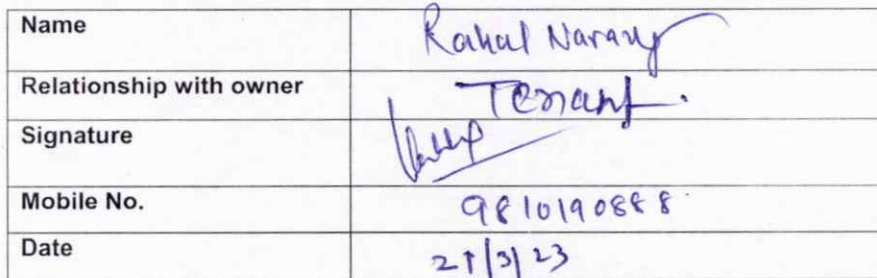 Name Rahul Narang
Relationship with owner Tenant.
Signature
Mobile No. 9810190888
Date 21/3/23